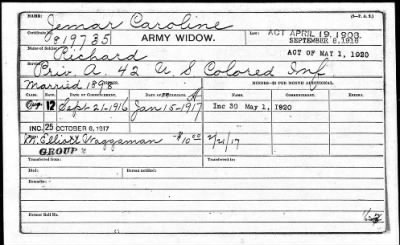 (3-785)
Jemar Caroline
Certificate No. 819735 ARMY WIDOW. Law ACT APRIL 19, 1908.
SEPTEMBER 8, 1916
Name of Soldier: Richard ACT OF MAY 1, 1920
Service: Priv. A. 42 U S Colored Inf
Married 1898
CLASS. RATE. DATE OF COMMENCEMENT. DATE OF CERTIFICATE.
12 Sept 21-1916 Jan 15-1917 Inc 30 May 1, 1920
INC. 25 OCTOBER 6, 1917
M. Elliott Waggaman $10.00 2/21/17
GROUP 2
Transferred to Transferred from
Home Home
Transferred to Transferred from
Former Roll No. Home